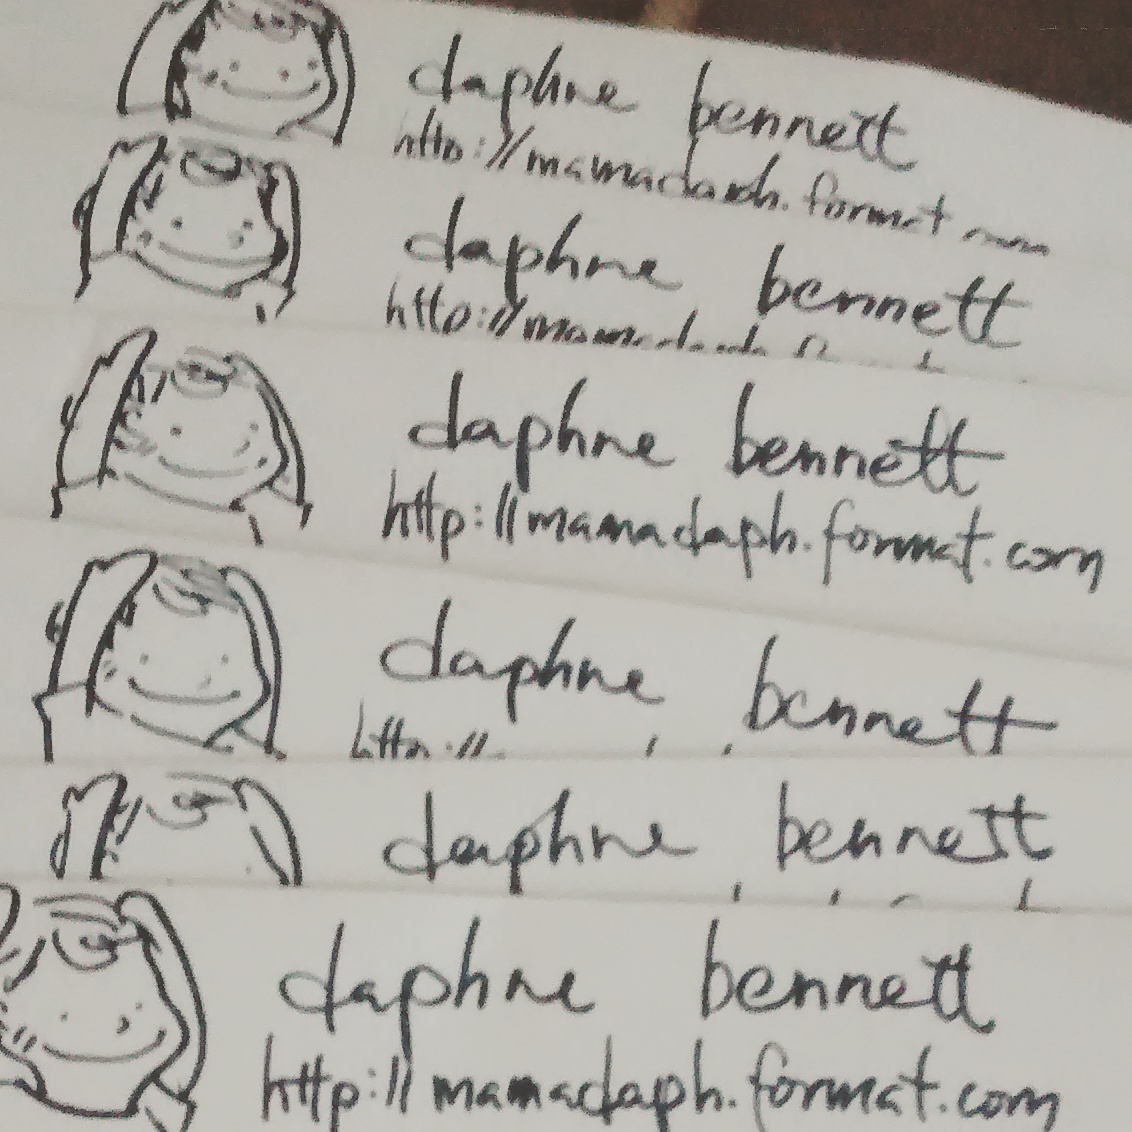 daphne bennett
http://mamadaph.format
daphne bennett
http://
daphne bennett
http://mamadaph.format.com
daphne bennett
http://
daphne bennett
daphne bennett
http://mamadaph.format.com